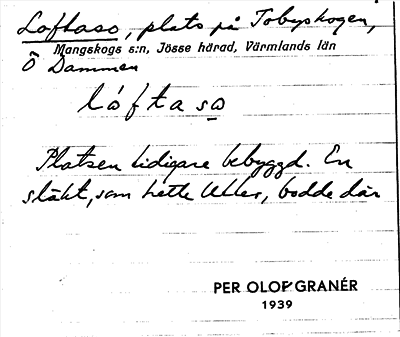 Loftaso, plats på Tobyskogen,
Mangskogs s:n, Jösse härad, Värmlands län
Ö Dammen
lóftaso
Platsen tidigare bebyggd. En
släkt, som hette Uhler, bodde där
PER OLOF GRANÉR
1939